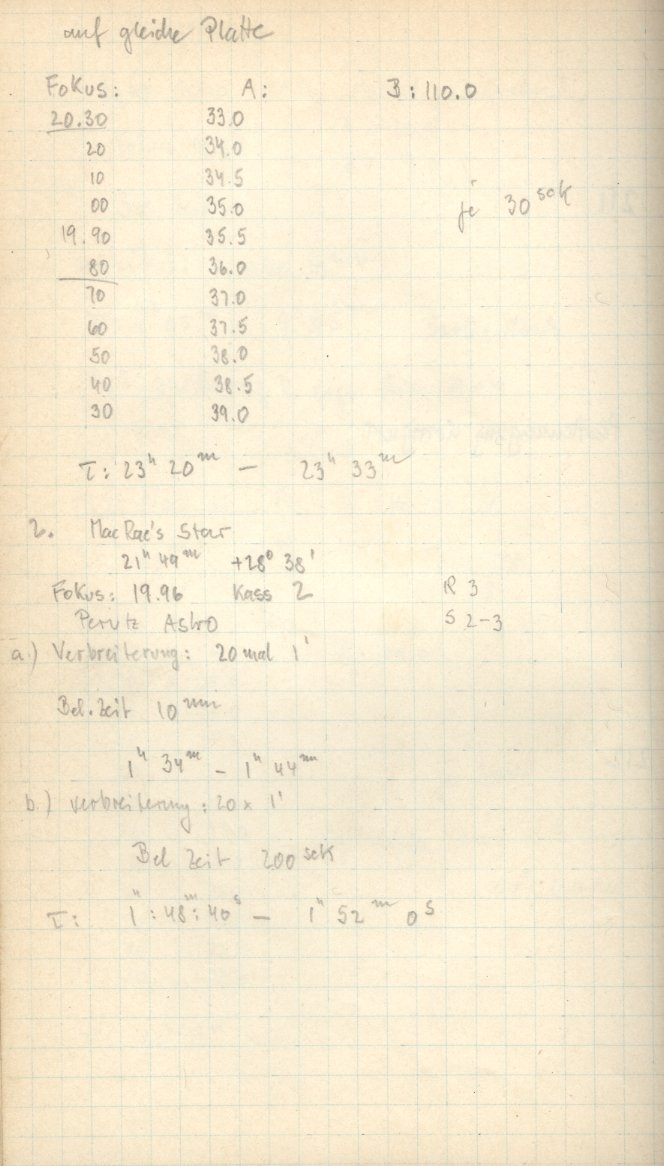 auf gleiche Platte
Fokus: A: B: 110.0
20.30 33.0
20 34.0
10 34.5
00 35.0
je 30 sek
19.90 35.5
80 36.0
70 37.0
60 37.5
50 38.0
40 38.5
30 39.0
T: 23h 20m – 23h 33m
2. MacRae's Star
21h 49m +28° 38'
Fokus: 19.96 Kass 2 R 3
Perutz Astro S 2-3
a.) Verbreiterung: 20 mal 1'
Bel. Zeit 10 min
1h 34m – 1h 44m
b.) Verbreiterung: 20 x 1'
Bel Zeit 200 sek
T: 1h : 48m : 40s – 1h 52m 0s